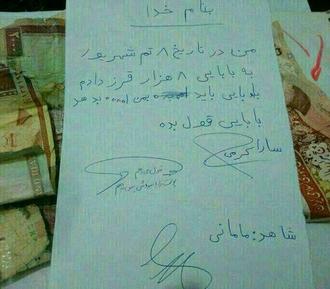 بنام خدا
من در تاریخ ۸ تم شهریور
به بابایی ۸ هزار قرز دادم
بابایی باید بمن بدهد
بابایی قول بده
سارا کرمی
شاهد: مامانی